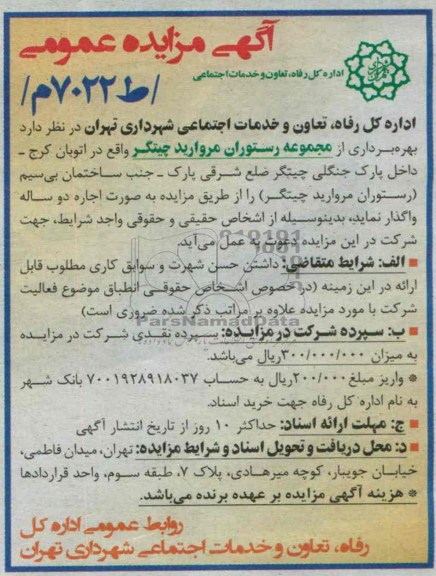 آگهی مزایده عمومی
اداره کل رفاه، تعاون و خدمات اجتماعی
/ط۷۰۲۲م/
اداره کل رفاه، تعاون و خدمات اجتماعی شهرداری تهران در نظر دارد
بهره‌برداری از مجموعه رستوران مروارید چیتگر واقع در اتوبان کرج -
داخل پارک جنگلی چیتگر ضلع شرقی پارک - جنب ساختمان بی‌سیم
(رستوران مروارید چیتگر) را از طریق مزایده به صورت اجاره دو ساله
واگذار نماید، بدینوسیله از اشخاص حقیقی و حقوقی واجد شرایط، جهت
شرکت در این مزایده دعوت به عمل می‌آید.
■ الف: شرایط متقاضی: داشتن حسن شهرت و سوابق کاری مطلوب قابل
ارائه در این زمینه (در خصوص اشخاص حقوقی انطباق موضوع فعالیت
شرکت با مورد مزایده علاوه بر مراتب ذکر شده ضروری است)
ParsNamadData
■ ب: سپرده شرکت در مزایده: سپرده نقدی شرکت در مزایده
به میزان ۳۰۰/۰۰۰/۰۰۰ریال می‌باشد.
* واریز مبلغ ۲۰۰/۰۰۰ریال به حساب ۷۰۰۱۹۲۸۹۱۸۰۳۷ بانک شهر
به نام اداره کل رفاه جهت خرید اسناد.
■ ج: مهلت ارائه اسناد: حداکثر ۱۰ روز از تاریخ انتشار آگهی
■ د: محل دریافت و تحویل اسناد و شرایط مزایده: تهران، میدان فاطمی،
خیابان جویبار، کوچه میرهادی، پلاک ۷، طبقه سوم، واحد قراردادها
* هزینه آگهی مزایده بر عهده برنده می‌باشد.
روابط عمومی اداره کل
رفاه، تعاون و خدمات اجتماعی شهرداری تهران